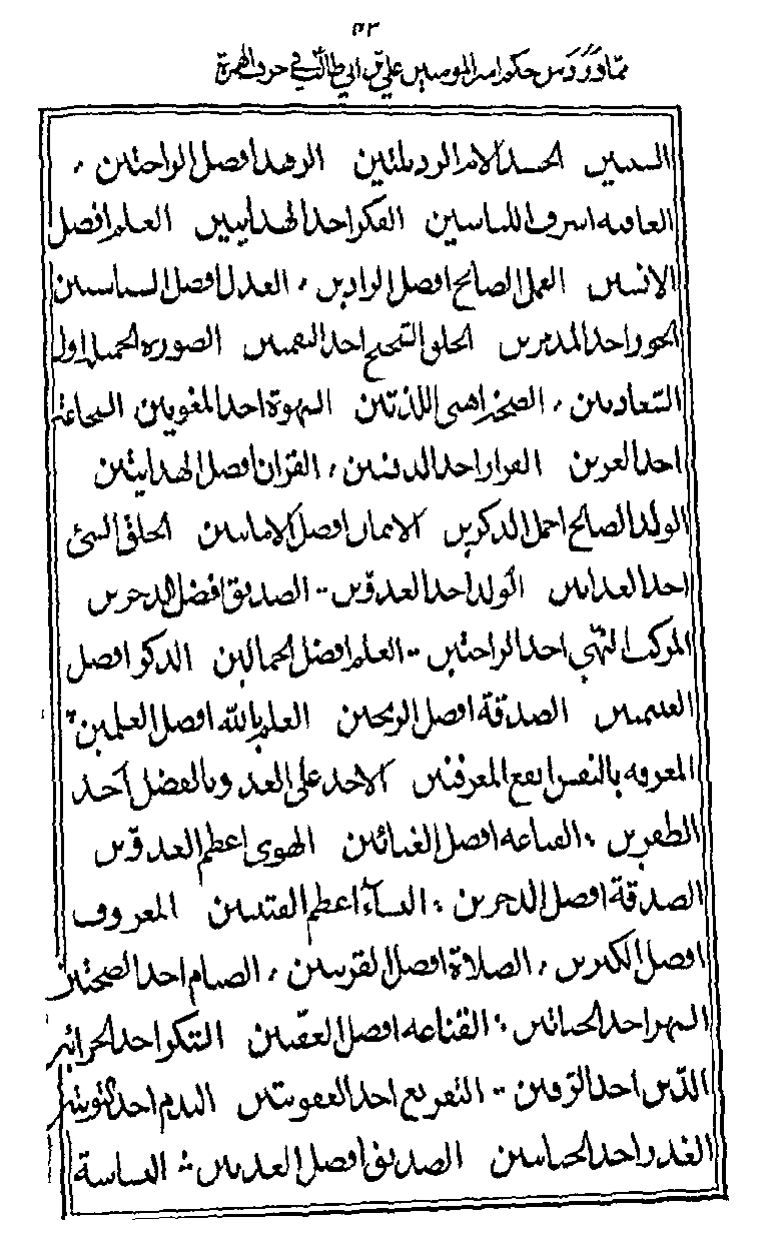 ٥٣
مما ورد من حكم امير المؤمنين علي بن ابي طالب في حرف الهمزة
السببين الحسد الأم الرذيلتين الزهد افضل الراحتين
العافية اشرف اللباسين الفكر احد الهدايتين العلم افضل
الانسين العمل الصالح افضل الزادين العدل افضل السياستين
الجور احد المدمرين الخلق السجيح احد النعمتين الصورة الجميلة اول
السعادتين الشهوة احد المغويين الشجاعة
احد العزين الفرار احد الذلين القرآن افضل الهدايتين
الولد الصالح اجمل الذكرين الايمان افضل الامانتين الخلق السيئ
احد العذابين الولد احد العدوين الصديق افضل الذخرين
المركب الهني احد الراحتين العلم افضل الجمالين الذكر افضل
الغنيمتين الصدقة افضل الربحين العلم بالله افضل العلمين
المعرفة بالنفس انفع المعرفتين الاخذ على العدو بالفضل احد
الظفرين القناعة افضل الغنائين الهوى اعظم العدوين
الصدقة افضل الذخرين النساء اعظم الفتنتين المعروف
افضل الكنزين الصلاة افضل القربتين الصيام احد الصحتين
السهر احد الحياتين القناعة افضل العفتين
الدين احد الرقين التقريع احد العقوبتين الندم احد التوبتين
الغدر احد الخيانتين الصديق افضل العدتين البشاشة